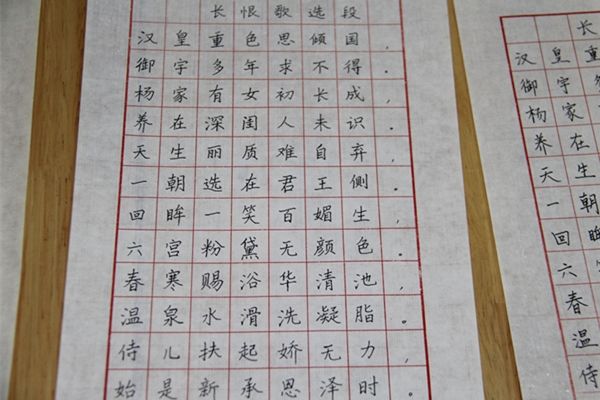 长恨歌选段
汉皇重色思倾国,
御宇多年求不得。
杨家有女初长成,
养在深闺人未识。
天生丽质难自弃,
一朝选在君王侧。
回眸一笑百媚生,
六宫粉黛无颜色。
春寒赐浴华清池,
温泉水滑洗凝脂。
侍儿扶起娇无力,
始是新承恩泽时。
长
汉皇重
御宇
杨家
养在
天生
一朝
回眸
六
春
温
侍